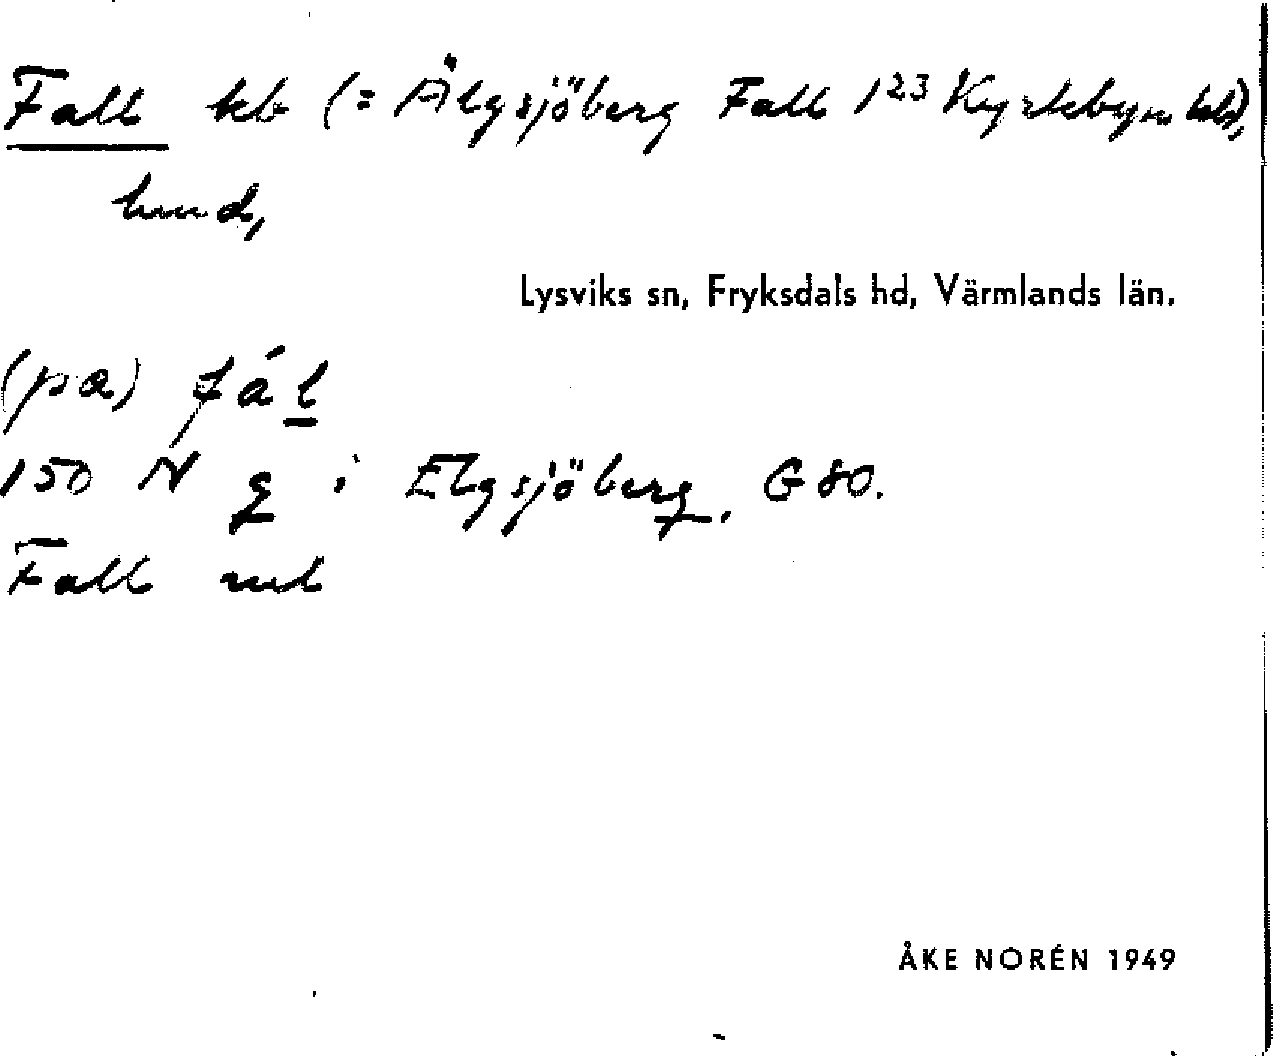 Fall kb (= Älgsjöberg Fall 1²³ Kyrkbyn
Lysviks sn, Fryksdals hd, Värmlands län.
(pa) fá l̲
150 N g i Elgsjöberg, G 80.
Fall
ÅKE NORÉN 1949